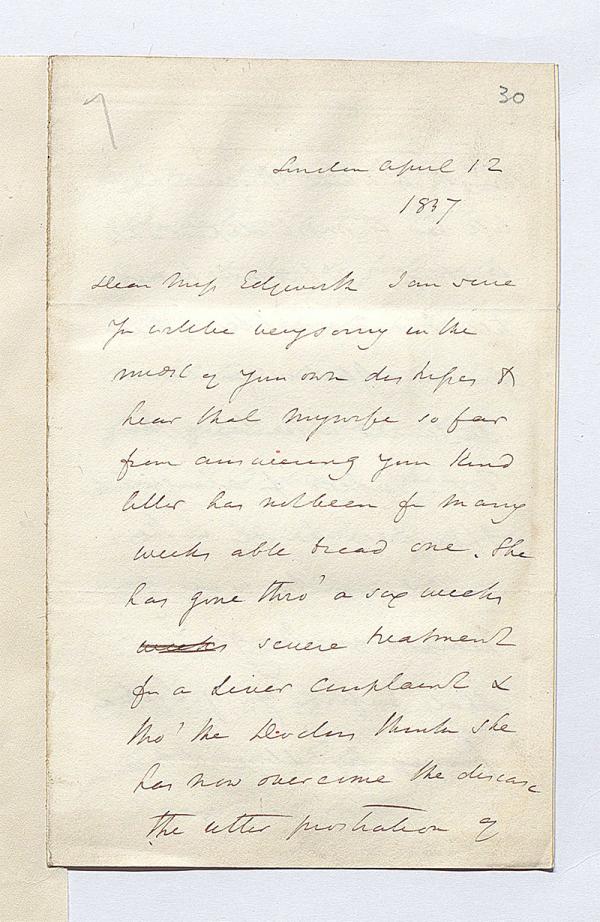 30
London April 12
1837
Dear Miss Edgeworth I am sure
you will be very sorry in the
midst of your own distress to
hear that my wife so far
from answering your kind
letter has not been for many
weeks able to read one. She
has gone thro' a six weeks
weeks severe treatment
for a Liver Complaint &
tho' the Doctors think she
has now overcome the disease
the utter prostration of